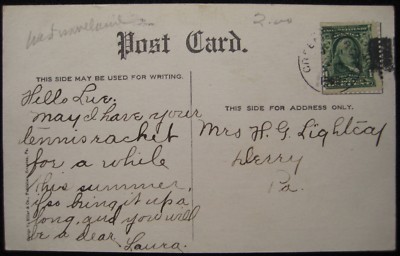 Westmoreland Co
2.00
Post Card.
THIS SIDE MAY BE USED FOR WRITING.
THIS SIDE FOR ADDRESS ONLY.
Hello Lue.
may I have your
tennis racket
for a while
this summer,
if so bring it up a
long, and you will
be a dear,
Laura.
Mrs H. G. Lightcap
Derry
Pa.